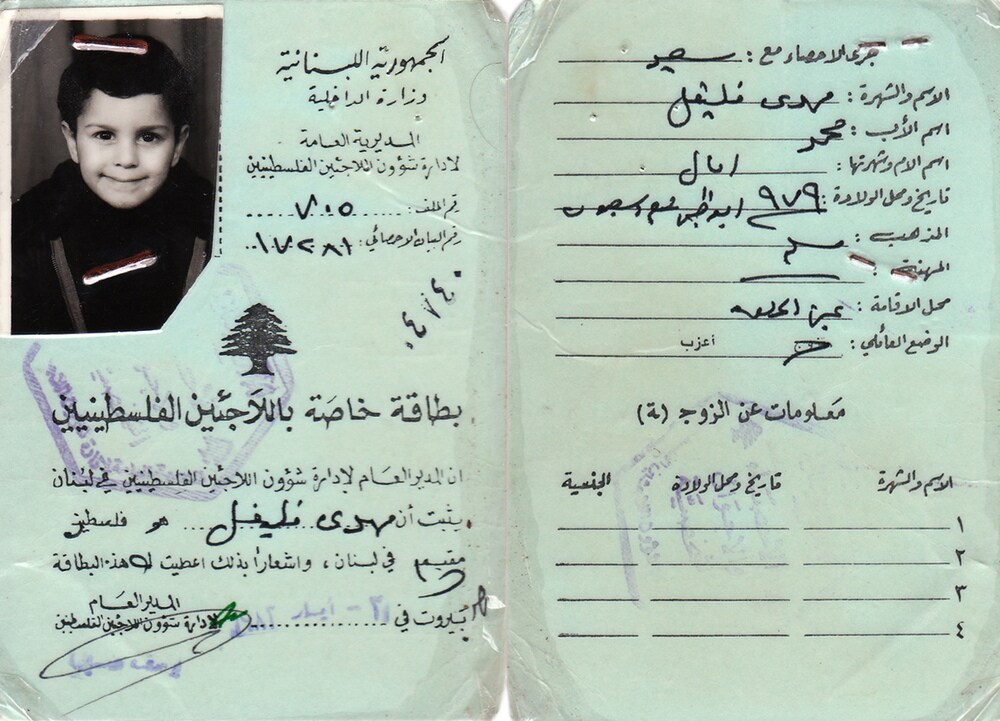 الجمهوريّة اللبنانية
وزارة الداخلية
المديرية العامة
لادارة شؤون اللاجئين الفلسطينيين
رقم الملف: ٧٠٥
رقم البيان الاحصائي: ١٧٢٨١
٠٤٧٤٠
بطاقة خاصة باللاجئين الفلسطينيين
ان المدير العام لإدارة شؤون اللاجئين الفلسطينيين في لبنان
يثبت أن مهدي فليفل هو فلسطيني
مقيم في لبنان، واشعاراً بذلك اعطيت له هذه البطاقة
بيروت في ٣١ - أيار
المدير العام
لإدارة شؤون اللاجئين الفلسطينيين
جرى الاحصاء مع: سعيد
الاسم والشهرة: مهدي فليفل
اسم الأب: محمد
اسم الام وشهرتها: امال
تاريخ ومحل الولادة: ٩٧٩
المذهب: مسلم
المهنة:
محل الاقامة: عين الحلوة
الوضع العائلي: أعزب
معلومات عن الزوج (ة)
الاسم والشهرة تاريخ ومحل الولادة الجنسية
١
٢
٣
٤